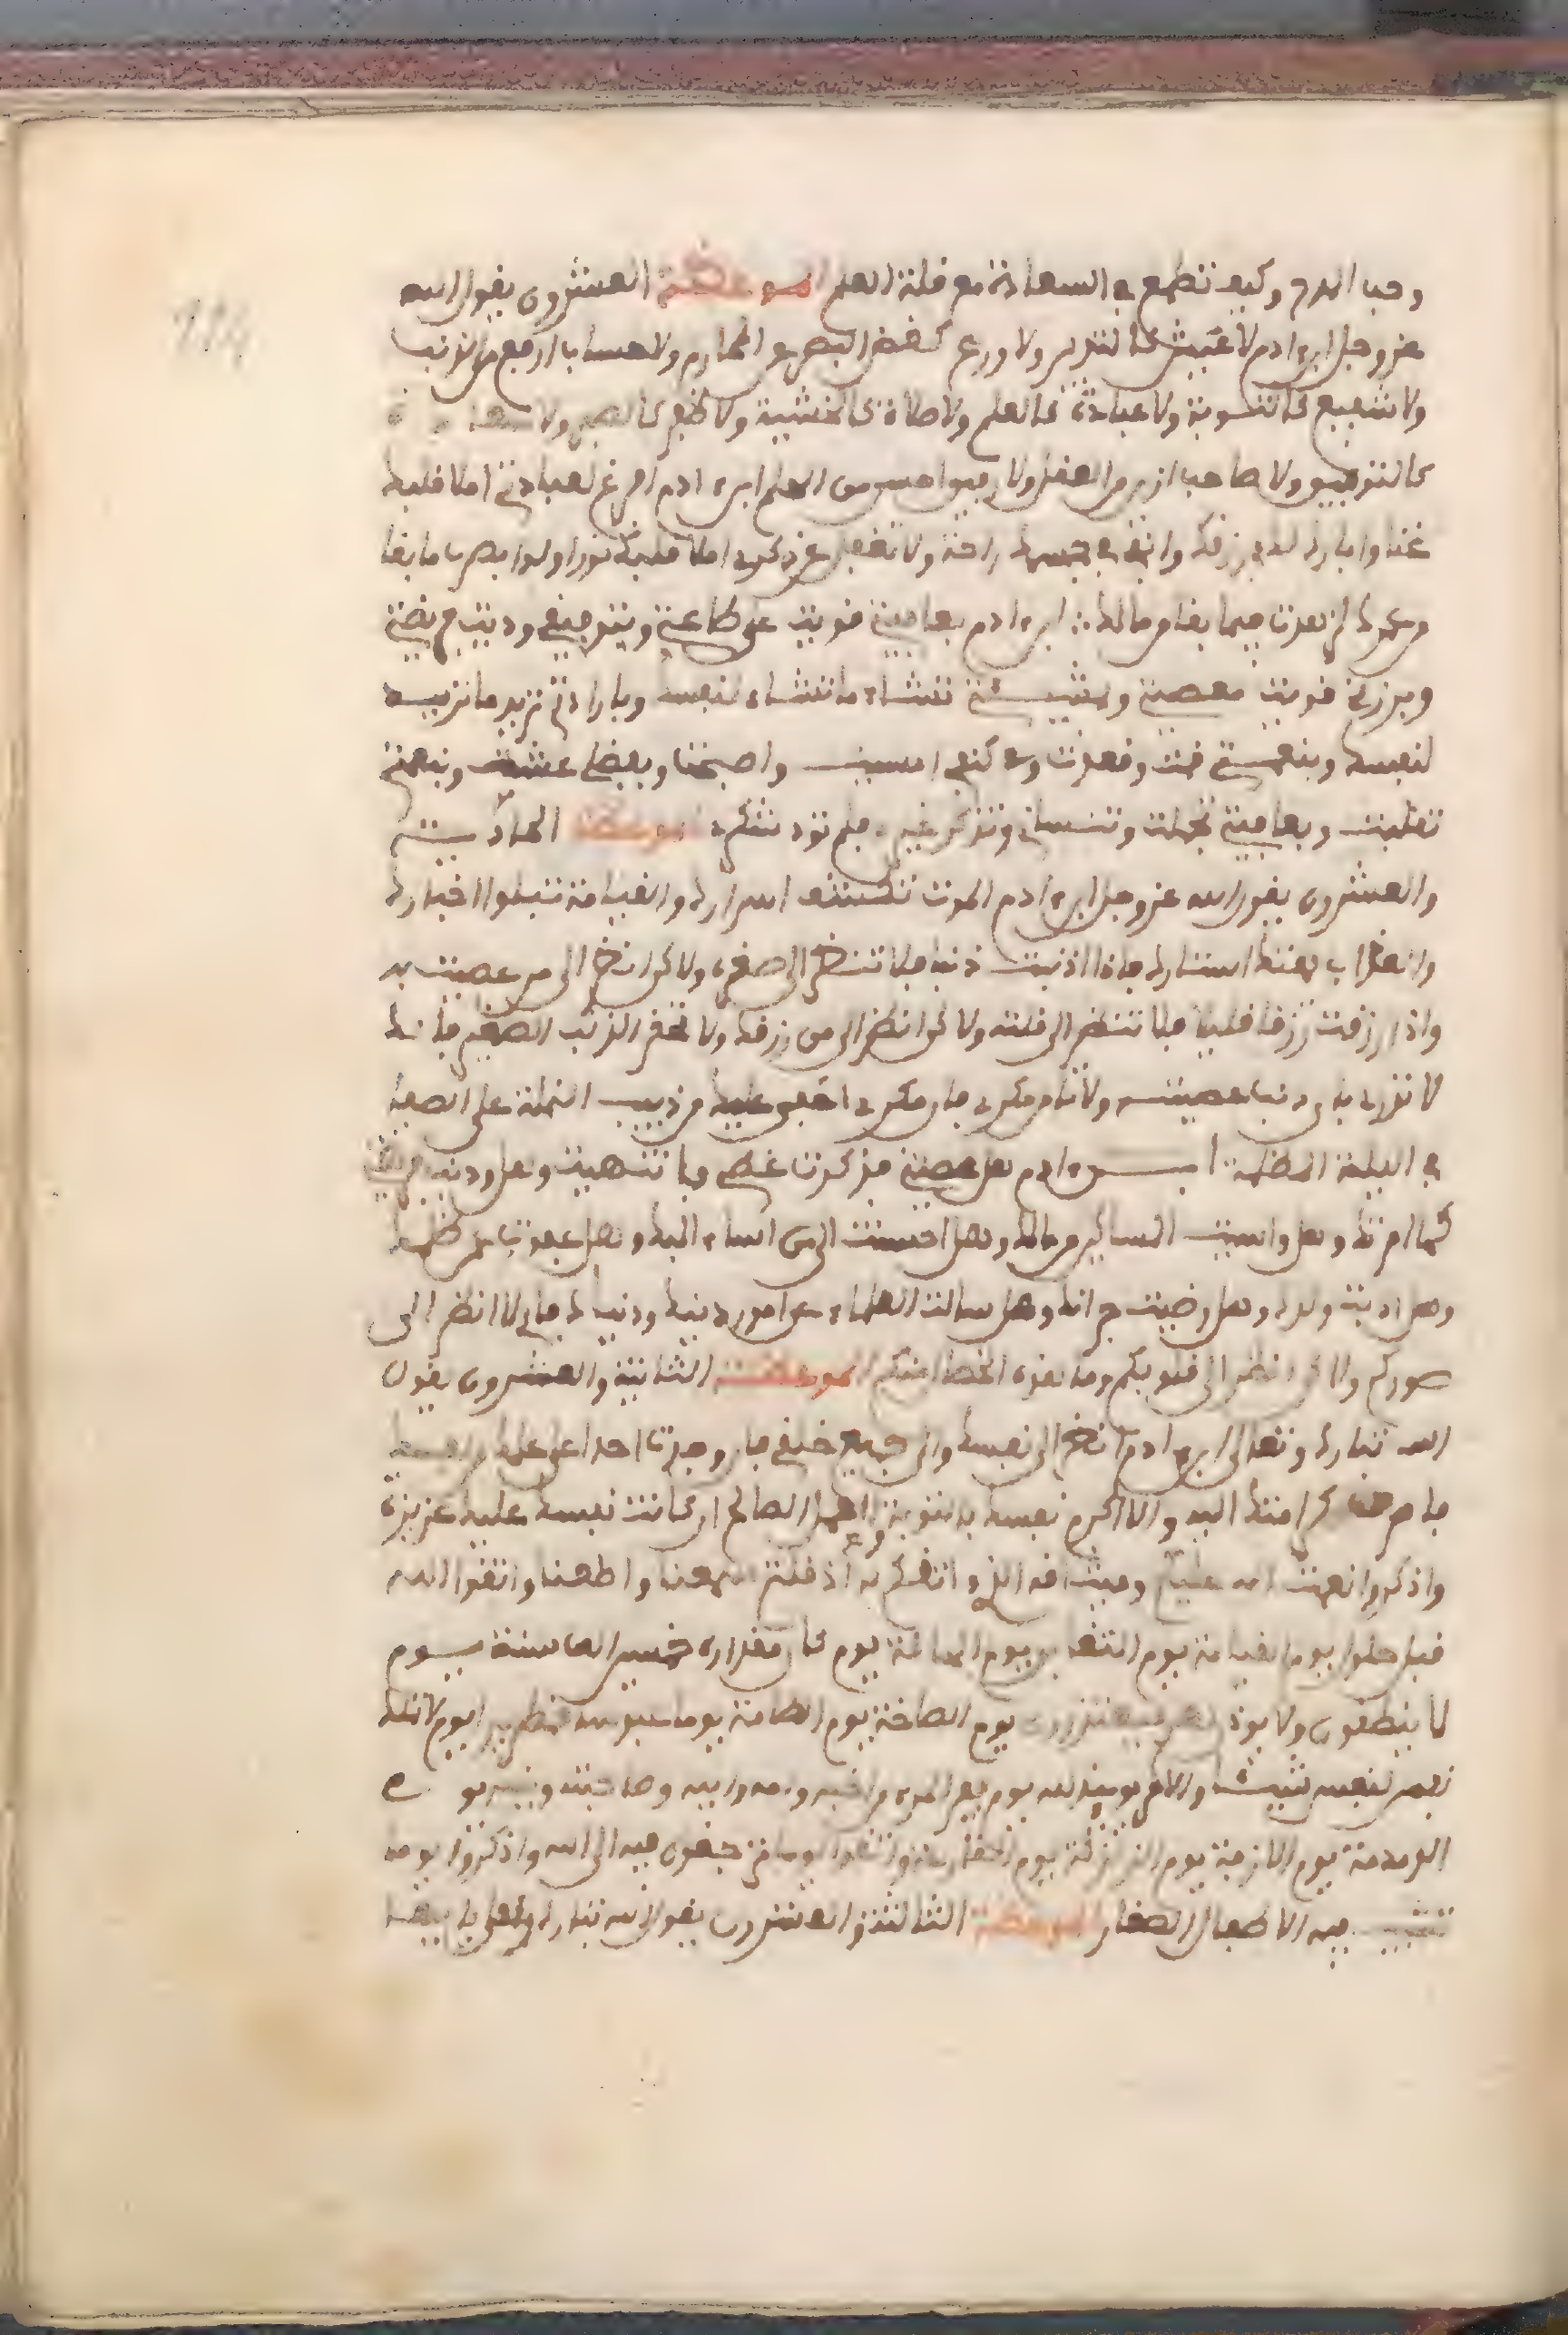 وحب المدح وكيف تطمع في السعادة مع قلة العلم الموعظة العشرون يقول الله
عز وجل ابن ادم لا عيش كالتدبير ولا ورع كغض البصر عن المحارم ولا حساب ارفع من الادب
ولا شفيع كالتوبة ولا عبادة كالعلم ولا صلاة كالخشية ولا ظفر كالصبر ولا
كالتوفيق ولا صاحب ازين من العقل ولا رفيق احسن من العلم ابن ادم افرغ لعبادتي املا قلبك
غنا وابارك لك في رزقك واتق في جسمك راحة ولا تغفل عن ذكري املا قلبك نورا
ابن ادم بعافيتي قويت على طاعتي وبتوفيقي وديت فريضتي
وبرزقي قويت معصيتي وبمشيئتي تشاء ما تشاء لنفسك وبارادتي تريد ما تريد
لنفسك وبنعمتي قمت وقعدت وفي كنفي امسيت واصبحت وبفضلي عشت وبنعمتي
تقلبت وبعافيتي تجملت وتنساني وتذكر غيري فلم تود شكري الموعظة الحادية
والعشرون يقول الله عز وجل ابن ادم الموت تكشف اسرارك والقيامة تبلوا اخبارك
والعذاب يهتك استارك فاذا اذنبت ذنبا فلا تنظر الى صغره ولاكن انظر الى من عصيت به
واذا رزقت رزقا قليلا فلا تنظر الى قلته ولاكن انظر الى من رزقك ولا تحقر الذنب الصغير فانك
لا تدري باي ذنب عصيته ولا تامن مكري فان مكري اخفى عليك من دبيب النملة على الصفا
في الليلة المظلمة ابن ادم هل عصيتني فذكرت غضبي فانتهيت وهل وديت فريضتي
كما امرتك وهل واسيت المساكين من مالك وهل احسنت الى من اساء اليك وهل عفوت عن من ظلمك
وهل ادبت ولدك وهل رضيت جيرانك وهل سالت العلماء عن امور دينك ودنياك فاني لا انظر الى
صوركم ولاكن انظر الى قلوبكم الموعظة الثانية والعشرون يقول
الله تبارك وتعالى ابن ادم انظر الى نفسك والى جميع خلقي فان وجدت احدا اعز عليك من نفسك
فاصرف كرامتك اليه والا اكرم نفسك بالتوبة والعمل الصالح ان كانت نفسك عليك عزيزة
واذكروا نعمت الله عليكم وميثاقه الذي واثقكم به اذ قلتم سمعنا واطعنا واتقوا الله
قبل حلول يوم القيامة يوم التغابن يوم الحاقة يوم كان مقداره خمسين الف سنة يوم
لا ينطقون ولا يوذن لهم فيعتذرون يوم الصاخة يوم الطامة يوما عبوسا قمطريرا يوم لا تملك
نفس لنفس شيئا والامر يومئذ لله يوم يفر المرء من اخيه وامه وابيه وصاحبته وبنيه يوم
الدمدمة يوم الازفة يوم الزلزلة يوم القارعة واتقوا يوما ترجعون فيه الى الله واذكروا يوما
تشيب فيه الاطفال الصغار الموعظة الثالثة والعشرون يقول الله تبارك وتعالى